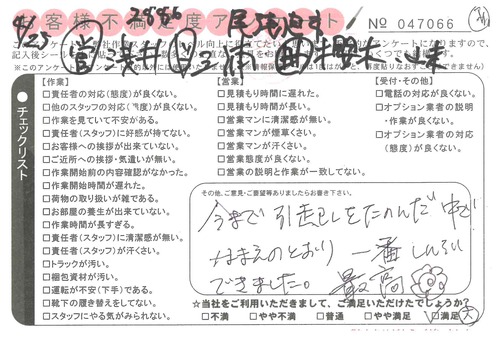 お客様不満足度アンケート
28866
No 047066
4/23
【作業】
□責任者の対応(態度)が良くない。
□他のスタッフの対応(態度)が良くない。
□作業を見ていて不安がある。
□責任者(スタッフ)に好感が持てない。
□お客様への挨拶が出来ていない。
□ご近所への挨拶・気遣いが無い。
□作業開始前の内容確認がなかった。
□作業開始時間が遅れた。
□荷物の取り扱いが雑である。
□お部屋の養生が出来ていない。
□作業時間が長すぎる。
□責任者(スタッフ)に清潔感が無い。
□責任者(スタッフ)が汗くさい。
□トラックが汚い。
□梱包資材が汚い。
□運転が不安(下手)である。
□靴下の履き替えをしてない。
□スタッフにやる気がみられない。
【営業】
□見積もり時間に遅れた。
□見積もり時間が長い。
□営業マンに清潔感が無い。
□営業マンが煙草くさい。
□営業マンが汗くさい。
□営業態度が良くない。
□営業の説明と作業が一致してない。
【受付・その他】
□電話の対応が良くない。
□オプション業者の説明
・作業が良くない。
□オプション業者の対応
(態度)が良くない。
チェックリスト
その他、ご意見・ご要望等ありましたらお書き下さい。
今まで引越しをたのんだ中で
なまえのとおり一番しんらい
できました。最高
☆当社をご利用いただきまして、ご満足いただけたでしょうか?
□不満 □やや不満 □普通 □やや満足 □満足 大